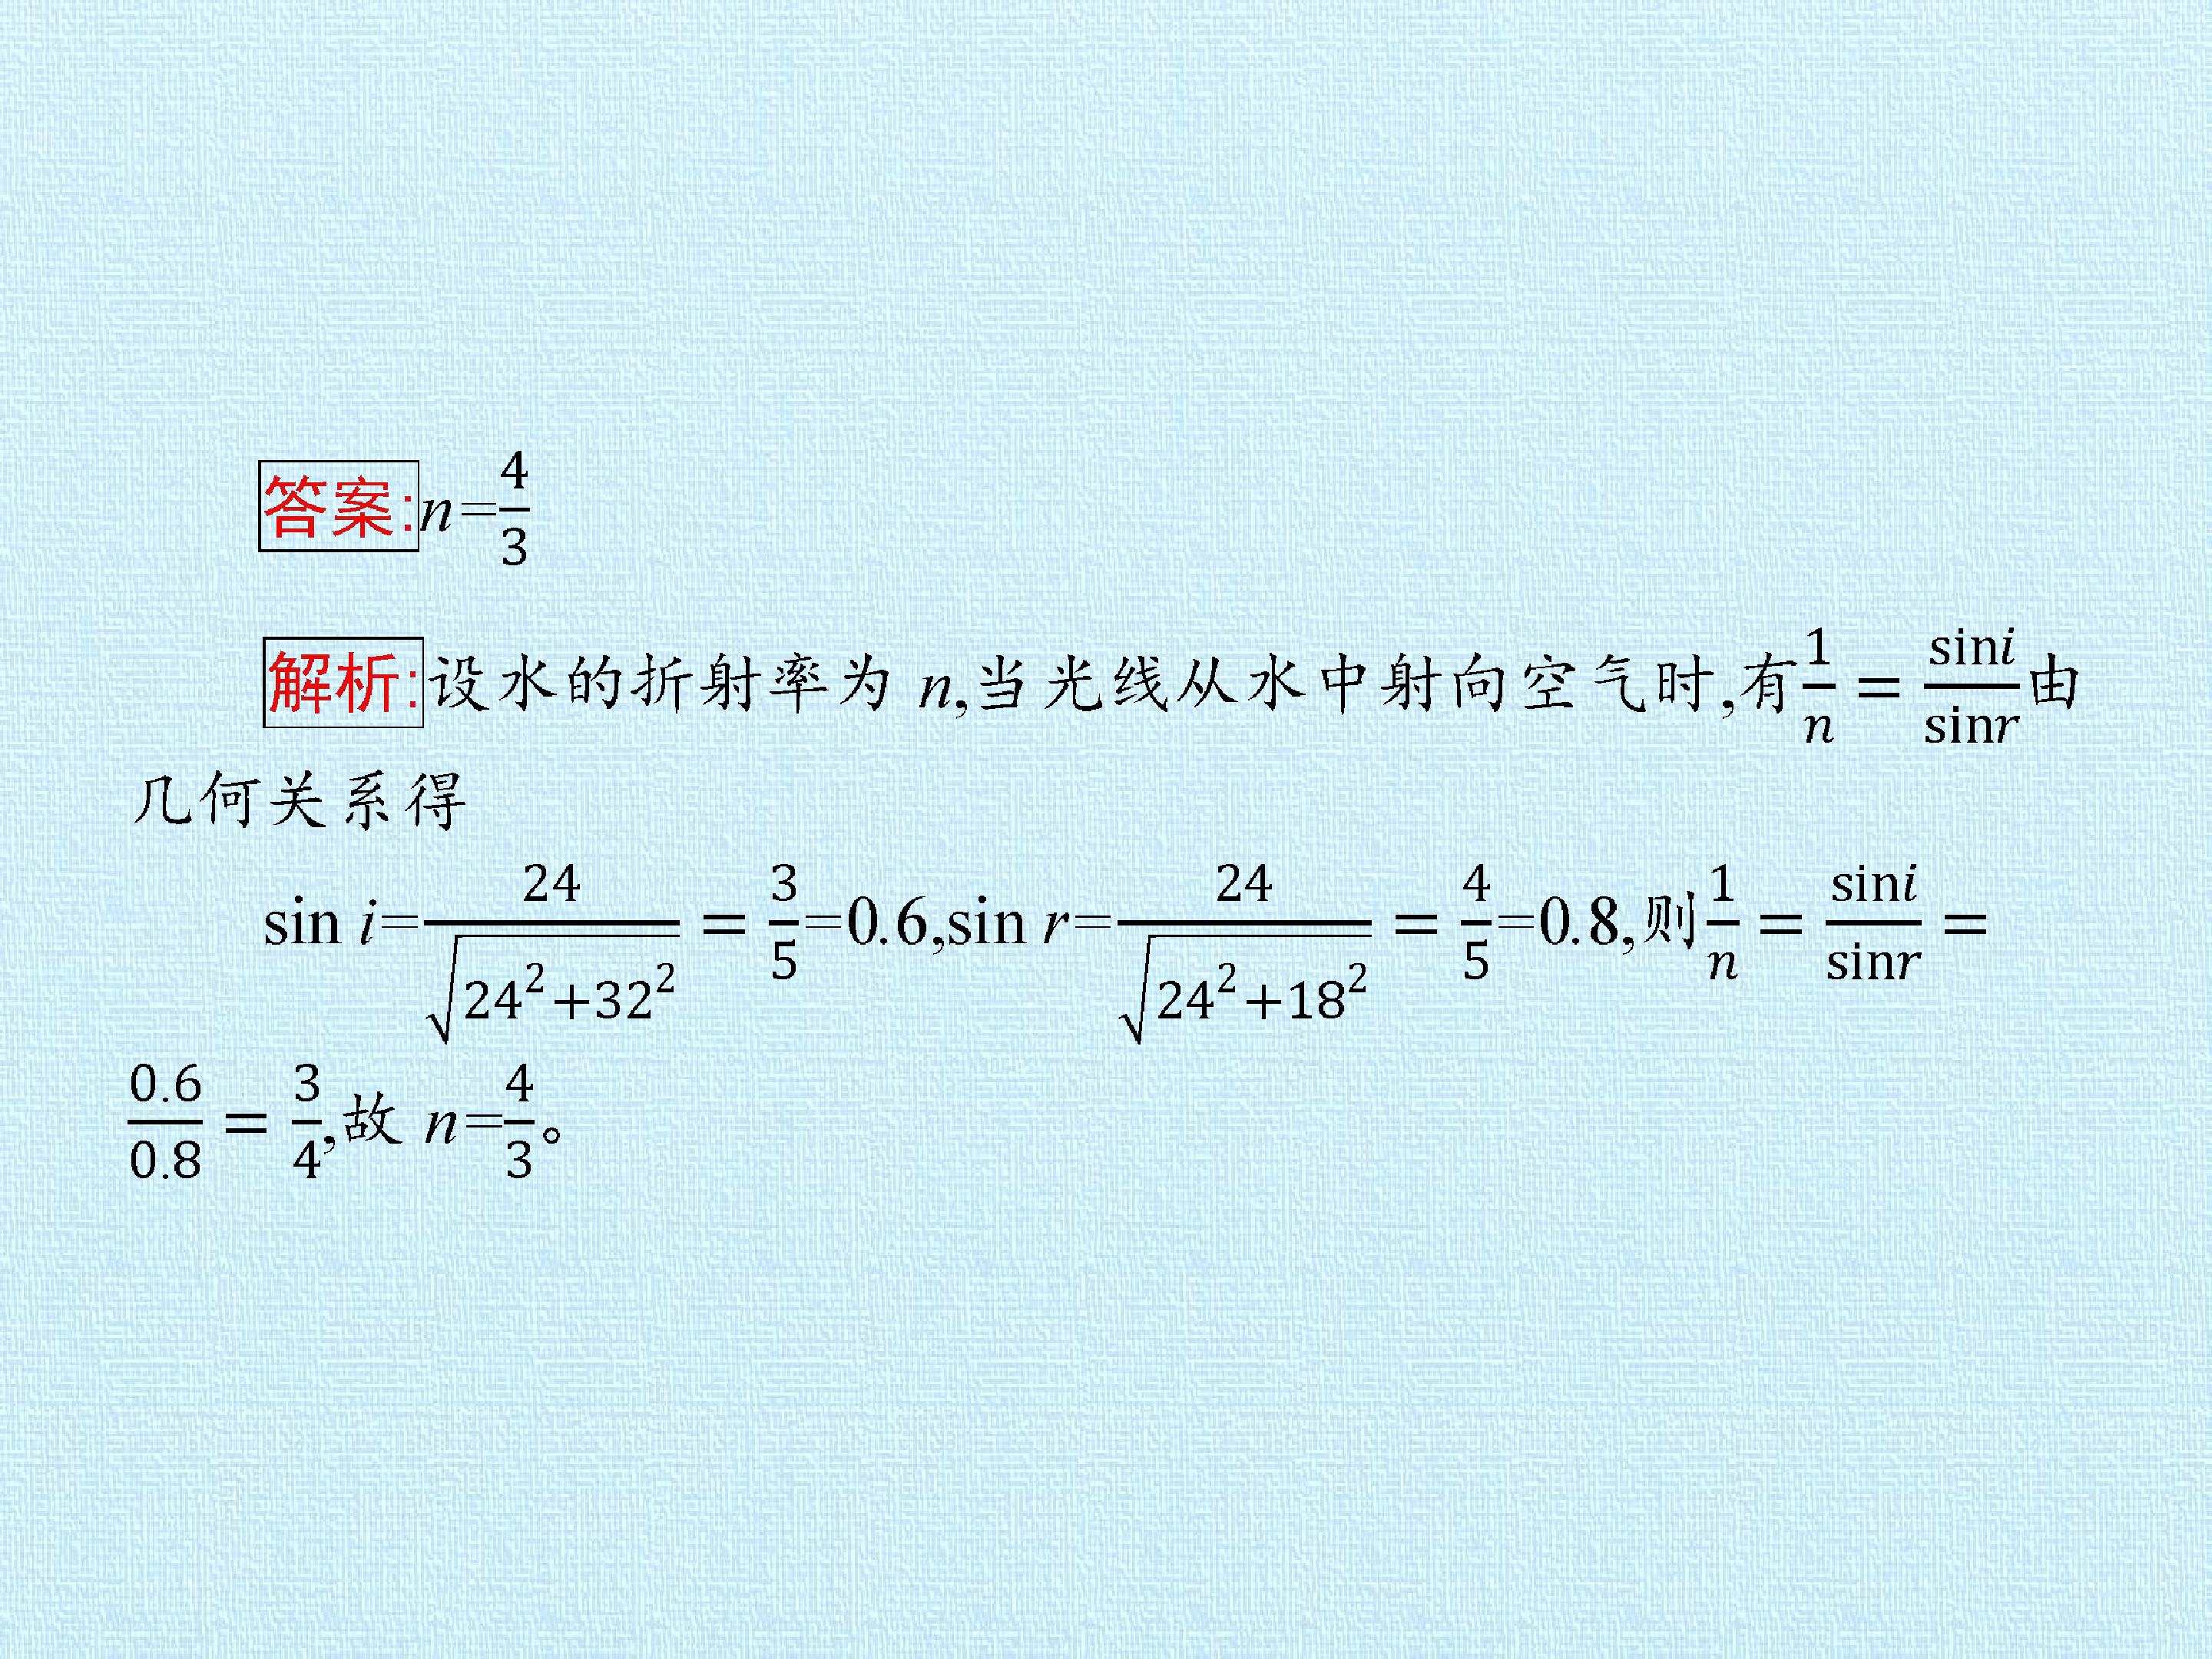 答案:n=4/3
解析:设水的折射率为 n,当光线从水中射向空气时,有1/n = sini/sinr由
几何关系得
sin i=24/√(24²+32²) = 3/5=0.6,sin r=24/√(24²+18²) = 4/5=0.8,则1/n = sini/sinr =
0.6/0.8 = 3/4,故 n=4/3。